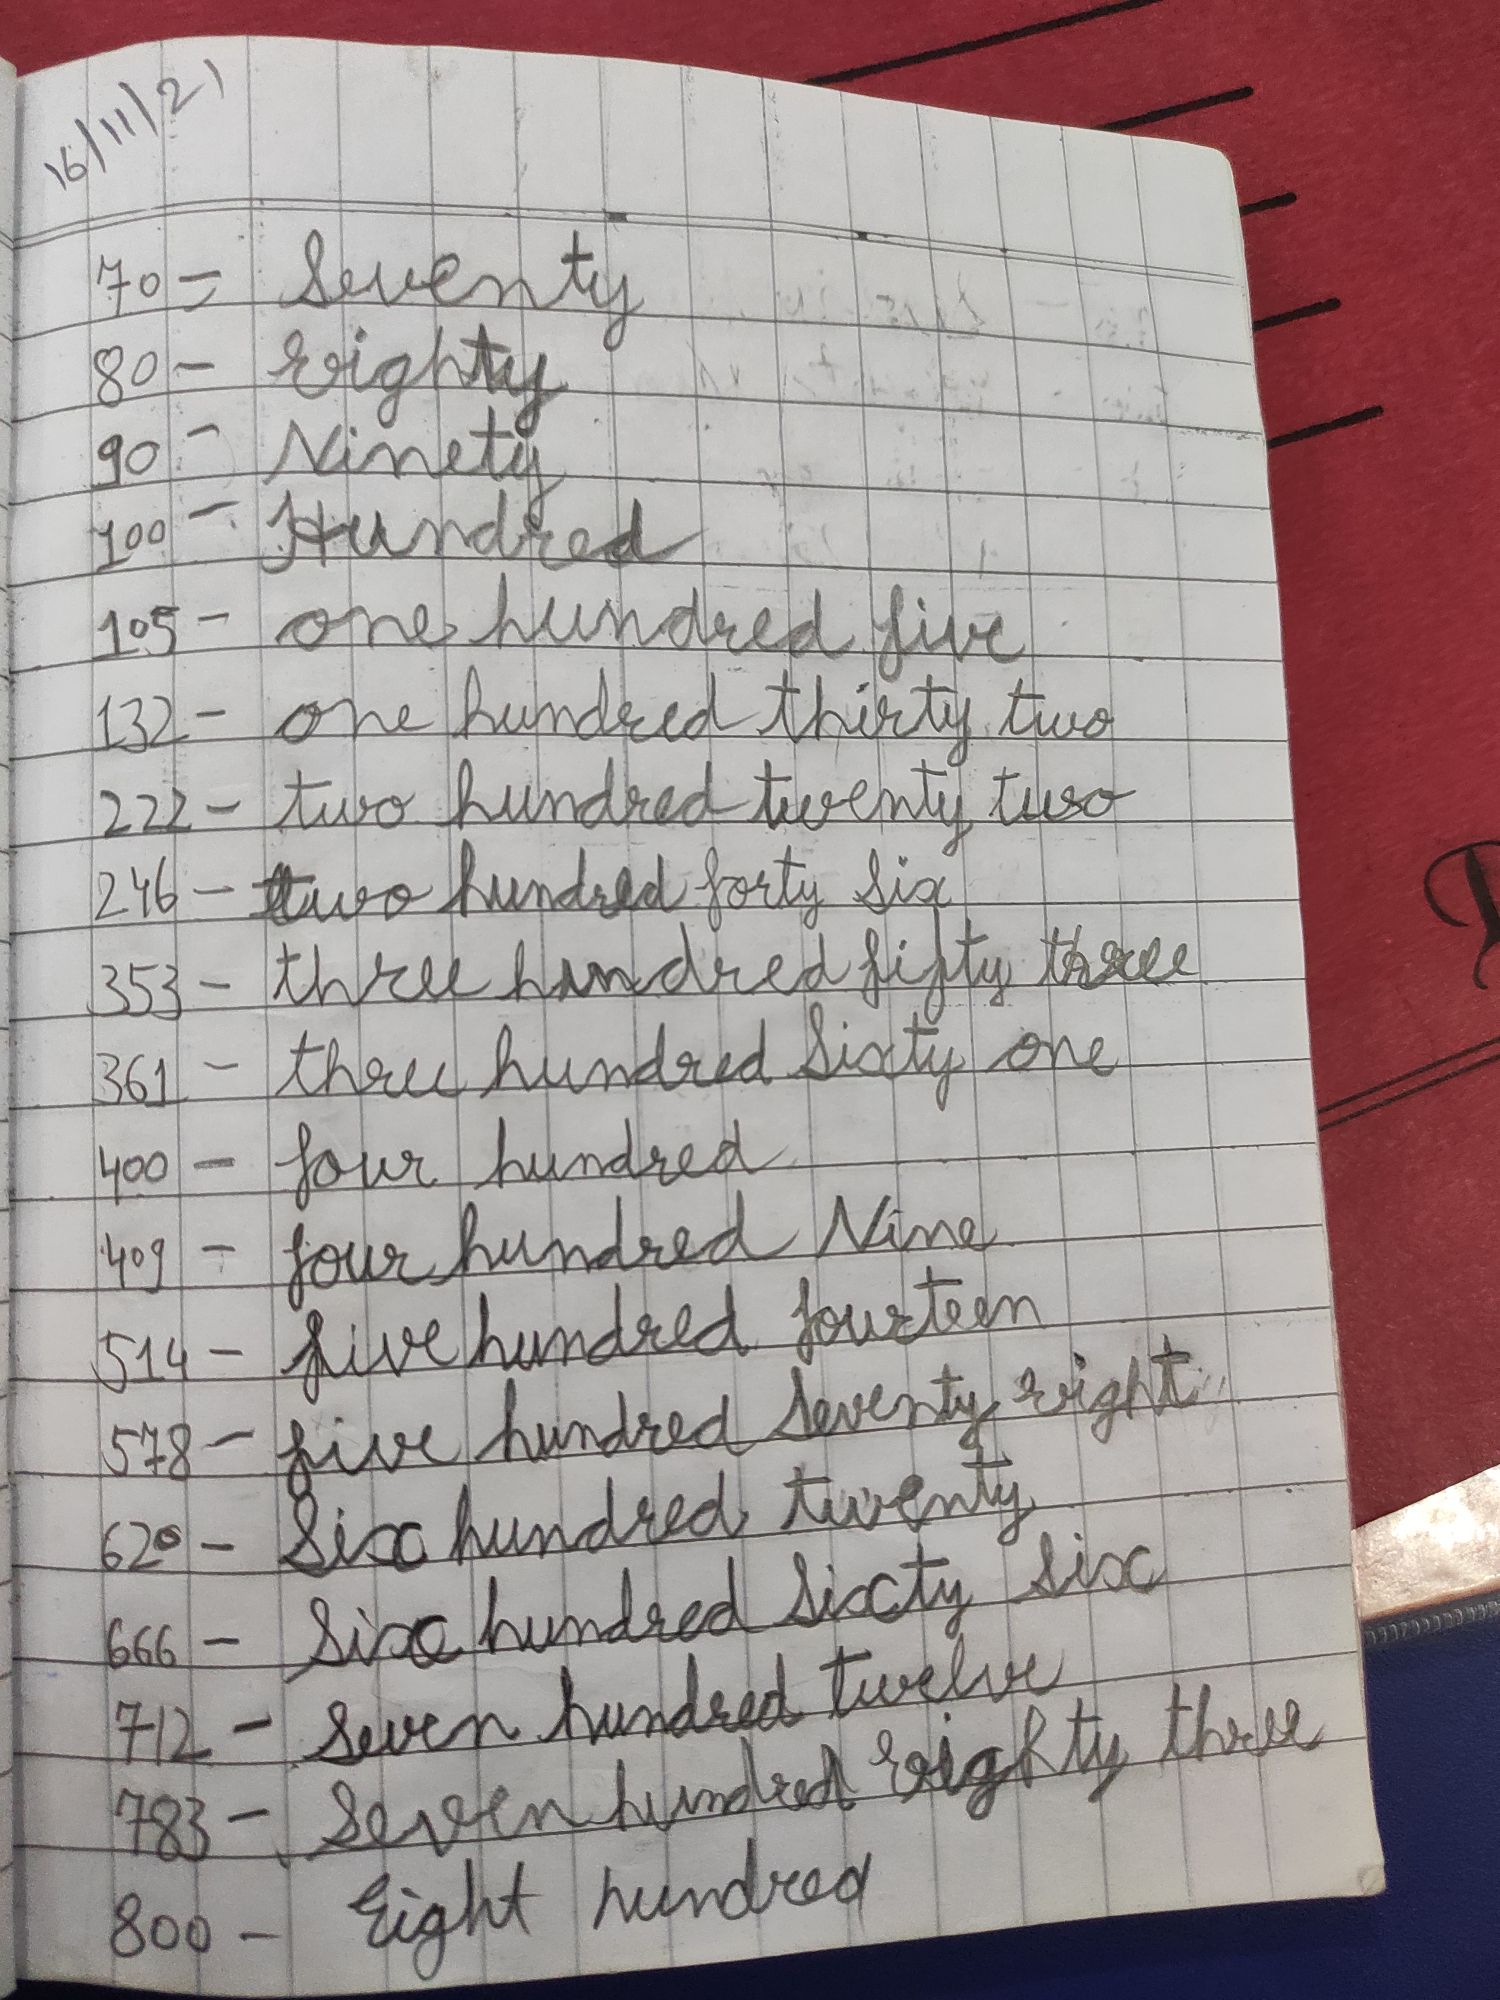 16/11/21
70 = Seventy
80 - Eighty
90 - Ninety
100 - Hundred
105 - one hundred five
132 - one hundred thirty two
222 - two hundred twenty two
246 - two hundred forty six
353 - three hundred fifty three
361 - three hundred Sixty one
400 - four hundred
409 - four hundred Nine
514 - five hundred fourteen
578 - five hundred Seventy eight
620 - Six hundred twenty
666 - Six hundred Sixty six
712 - Seven hundred twelve
783 - Seven hundred Eighty three
800 - Eight hundred